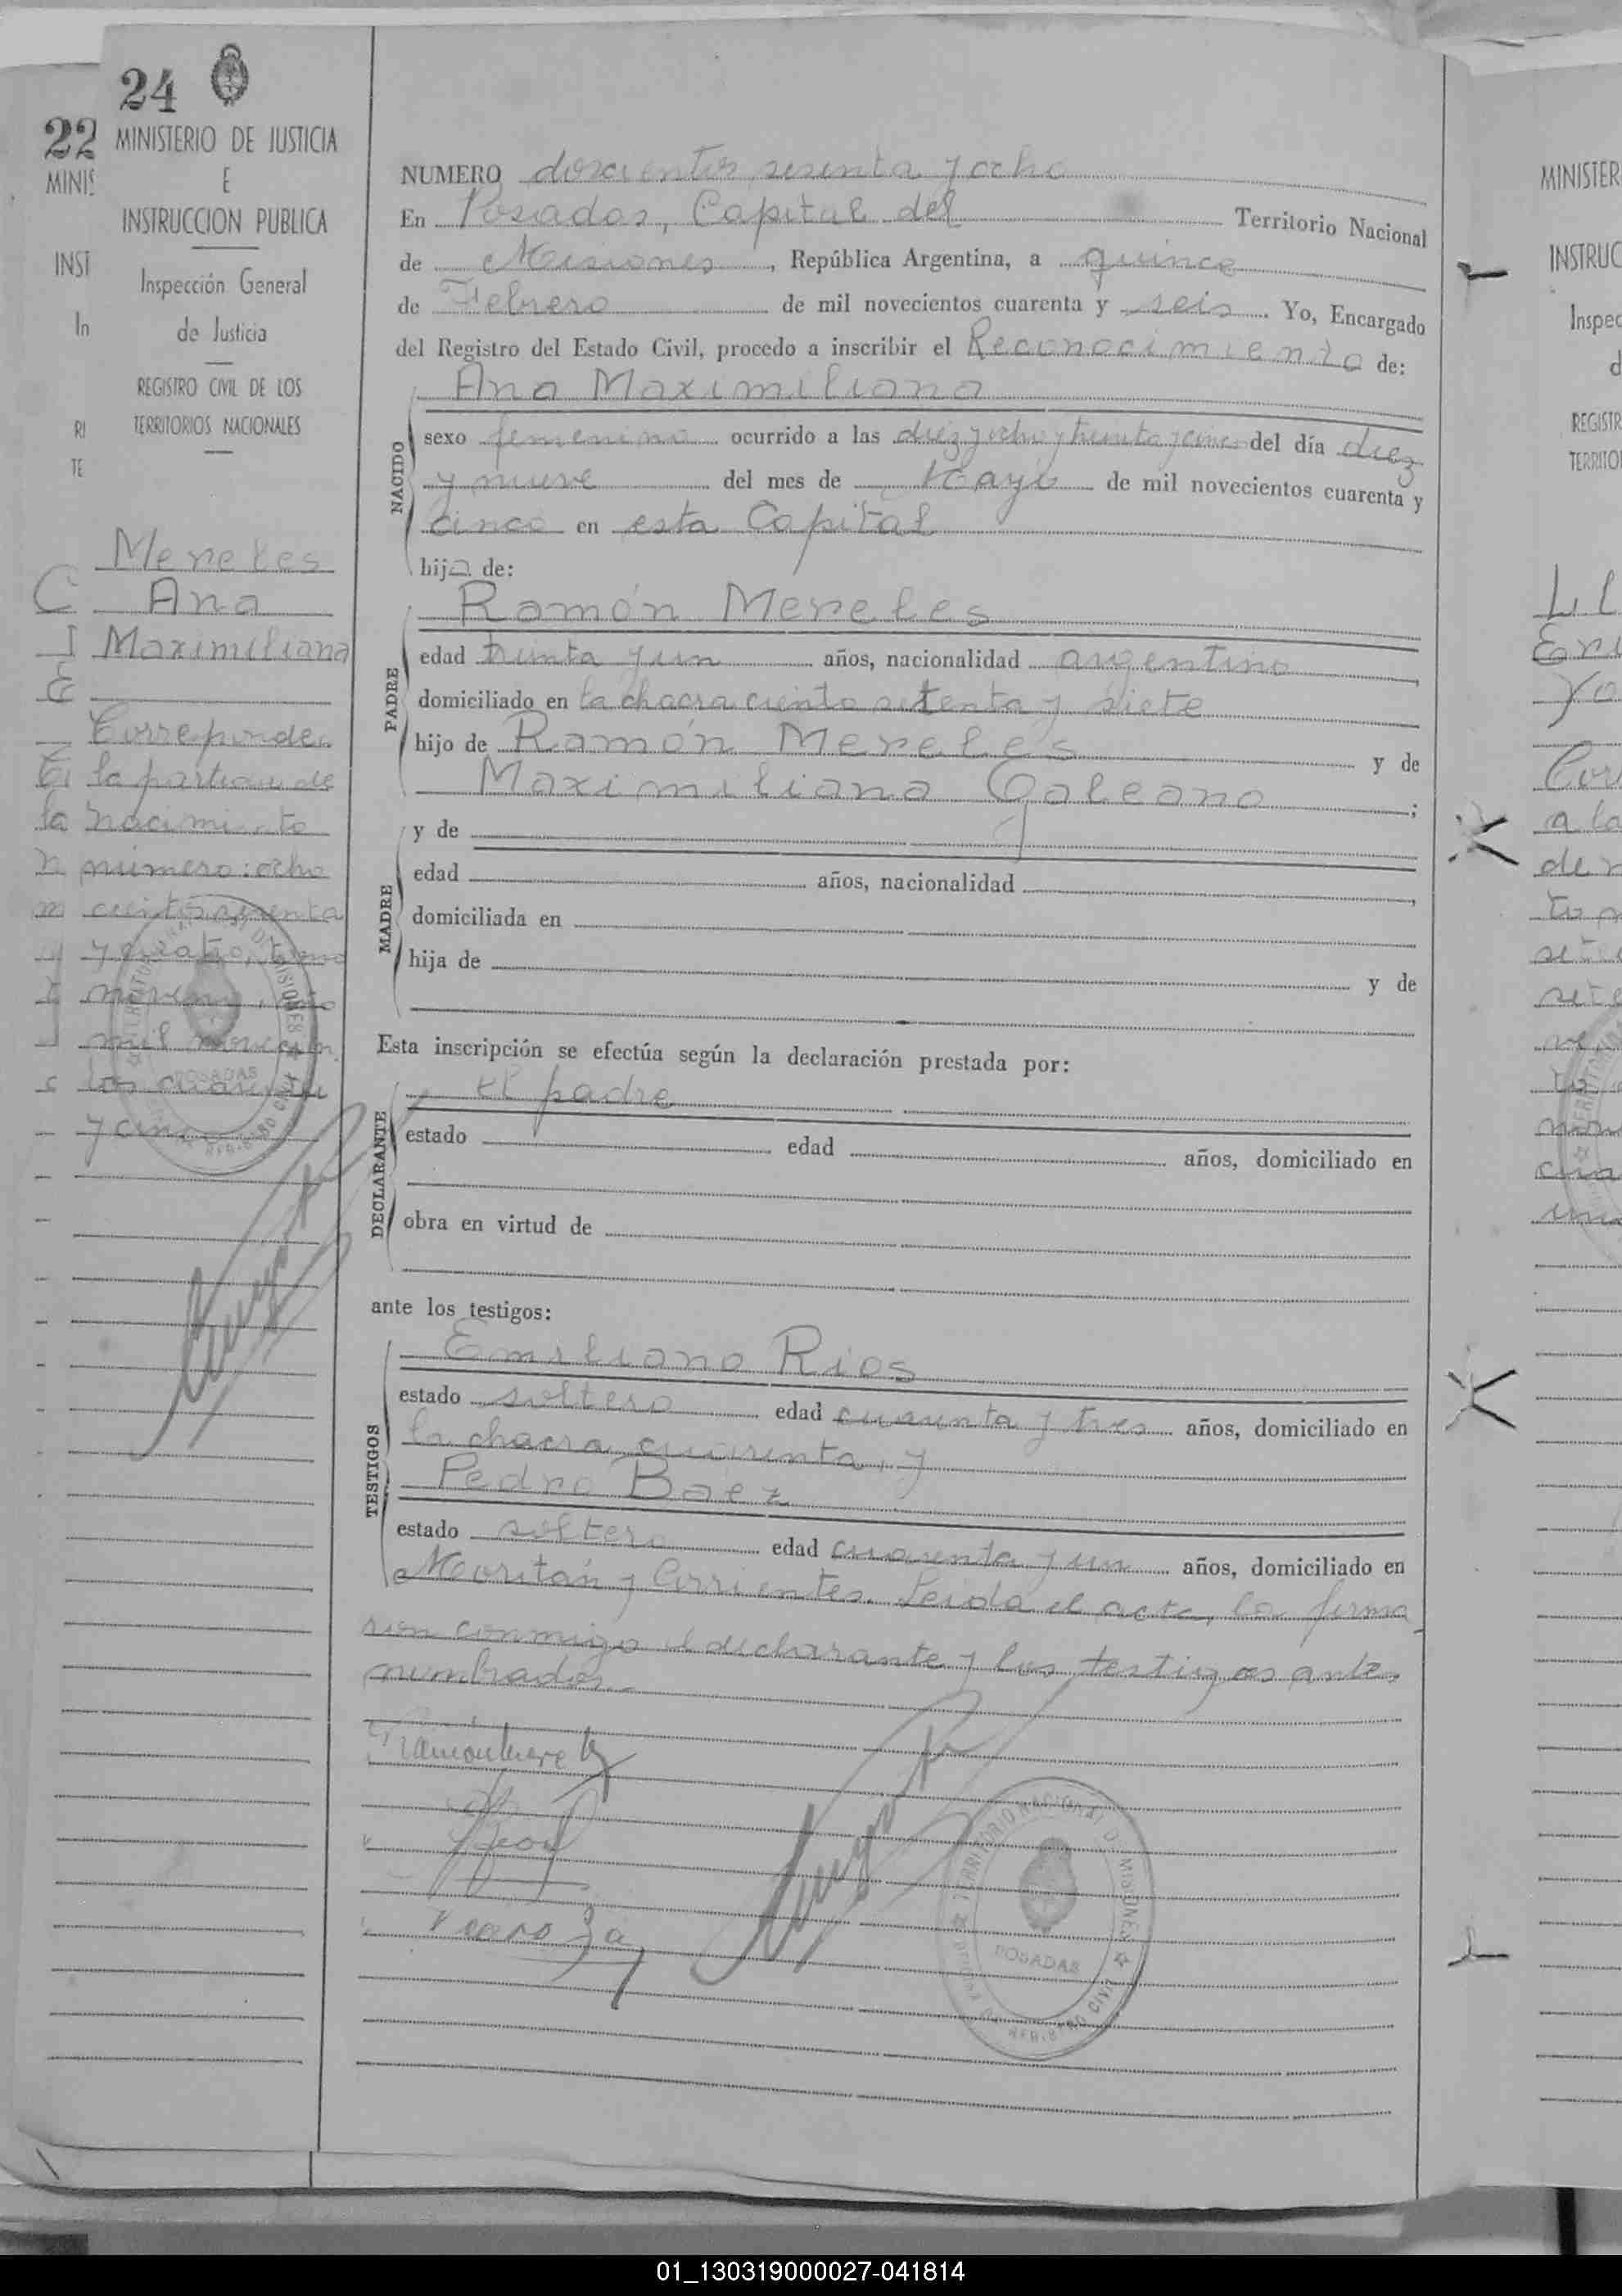 24
22
MINISTERIO DE JUSTICIA
E
INSTRUCCION PUBLICA
Inspección General
de Justicia
REGISTRO CIVIL DE LOS
TERRITORIOS NACIONALES
MINIS
INST
In
RI
TE
Mereles
Ana
Maximiliana
Correponde
a la partida de
nacimiento
número: ocho
cientos sesenta
y cuatro, tomo
noveno, año
mil novecien
tos cuarenta
y cinco
NUMERO doscientos sesenta y ocho
En Posadas, Capital del Territorio Nacional
de Misiones, República Argentina, a quince
de Febrero de mil novecientos cuarenta y seis. Yo, Encargado
del Registro del Estado Civil, procedo a inscribir el Reconocimiento de:
NACIDO
Ana Maximiliana
sexo femenino ocurrido a las diez y ocho y treinta y cinco del día diez
y nueve del mes de Mayo de mil novecientos cuarenta y
cinco en esta Capital
hija de:
PADRE
Ramón Mereles
edad treinta y un años, nacionalidad argentino
domiciliado en la chacra ciento setenta y siete
hijo de Ramón Mereles y de
Maximiliana Galeano;
MADRE
y de
edad años, nacionalidad
domiciliada en
hija de y de
Esta inscripción se efectúa según la declaración prestada por:
DECLARANTE
el padre
estado edad años, domiciliado en
obra en virtud de
ante los testigos:
TESTIGOS
Emiliano Rios
estado soltero edad cuarenta y tres años, domiciliado en
la chacra cuarenta, y
Pedro Baez
estado soltero edad cuarenta y un años, domiciliado en
Moritán y Corrientes. Leida el acta, la firma
ron conmigo el declarante y los testigos ante
nombrados.
Ramón Merele
Pedro Ba
TERRITORIO NACIONAL D. MISIONES
POSADAS
REGISTRO CIVIL
MINISTER
INSTRUC
Inspec
d
REGISTR
TERRITO
01_130319000027-041814